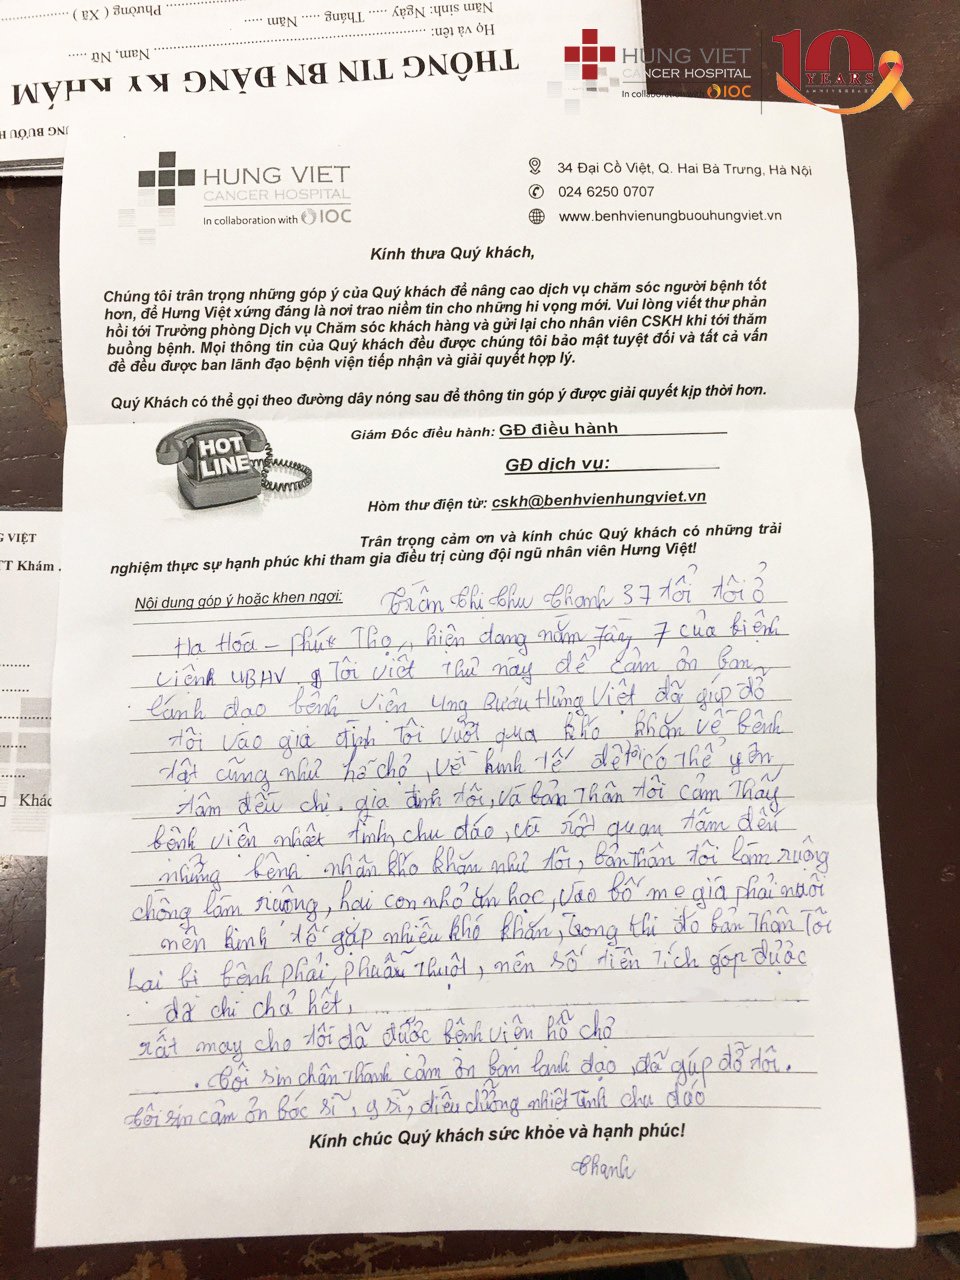 Phường ( Xã )
Năm sinh: Ngày ..... Tháng ..... Năm
Họ và tên: Nam, Nữ
THÔNG TIN BN ĐĂNG KÝ KHÁM
HUNG VIET
CANCER HOSPITAL
In collaboration with IOC
10
YEARS
ANNIVERSARY
HUNG VIET
CANCER HOSPITAL
In collaboration with IOC
34 Đại Cồ Việt, Q. Hai Bà Trưng, Hà Nội
024 6250 0707
www.benhvienungbuouhungviet.vn
Kính thưa Quý khách,
Chúng tôi trân trọng những góp ý của Quý khách để nâng cao dịch vụ chăm sóc người bệnh tốt
hơn, để Hưng Việt xứng đáng là nơi trao niềm tin cho những hi vọng mới. Vui lòng viết thư phản
hồi tới Trưởng phòng Dịch vụ Chăm sóc khách hàng và gửi lại cho nhân viên CSKH khi tới thăm
buồng bệnh. Mọi thông tin của Quý khách đều được chúng tôi bảo mật tuyệt đối và tất cả vấn
đề đều được ban lãnh đạo bệnh viện tiếp nhận và giải quyết hợp lý.
Quý Khách có thể gọi theo đường dây nóng sau để thông tin góp ý được giải quyết kịp thời hơn.
HOT
LINE
Giám Đốc điều hành: GĐ điều hành
GĐ dịch vụ:
Hòm thư điện tử: cskh@benhvienhungviet.vn
Trân trọng cảm ơn và kính chúc Quý khách có những trải
nghiệm thực sự hạnh phúc khi tham gia điều trị cùng đội ngũ nhân viên Hưng Việt!
G VIỆT
TT Khám
Khác
Nội dung góp ý hoặc khen ngợi: Trần Thị Thu Thanh 37 tổi tôi ở
Hạ Hóa – Phúc Thọ, hiện đang nằm Tầng 7 của bệnh
viện UBHV. Tôi viết thư này để cảm ơn ban
lãnh đạo bệnh viện Ung Bướu Hưng Việt đã giúp đỡ
tôi vào gia đình tôi vượt qua khó khăn về bệnh
tật cũng như hỗ chợ, về kinh tế để tôi có thể yên
tâm đều chị. gia đình tôi, và bản thân tôi cảm thấy
bệnh viện nhiệt tình, chu đáo, và rất quan tâm đến
những bệnh nhân khó khăn như tôi, bản thân tôi làm ruộng
chồng làm ruộng, hai con nhỏ ăn học, vào bố mẹ già phải nuôi
nên kinh tế gặp nhiều khó khăn, trong thi đó bản thân tôi
Lại bị bệnh phải phuẫu thuật, nên số tiền tích góp được
đã chi chả hết,
rất may cho tôi đã được bệnh viện hỗ chợ
. Tôi sin chân thành cảm ơn ban lãnh đạo, đã giúp đỡ tôi.
Tôi sin cảm ơn bác sĩ, y sĩ, điều dưỡng nhiệt tình chu đáo
Kính chúc Quý khách sức khỏe và hạnh phúc!
Thanh